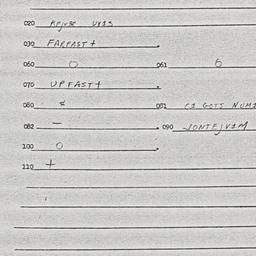 020 RFJVSE UX1S
030 FARFAST+
060 0 061 6
070 UPFAST+
080 081 C1 GOTS NUM1
082 — 090 JONTEJV1M
100 0
110 +